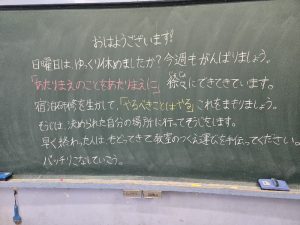 おはようございます!
日曜日は、ゆっくり休めましたか?今週もがんばりましょう。
「あたりまえのことをあたりまえに」徐々にできてきています。
宿泊研修を生かして、「やるべきことはやる」これをまもりましょう。
そうじは、決められた自分の場所に行ってそうじをします。
早く終わった人は、もどってきて教室のつくえ運びを手伝ってください。
バッチリこなしていこう。